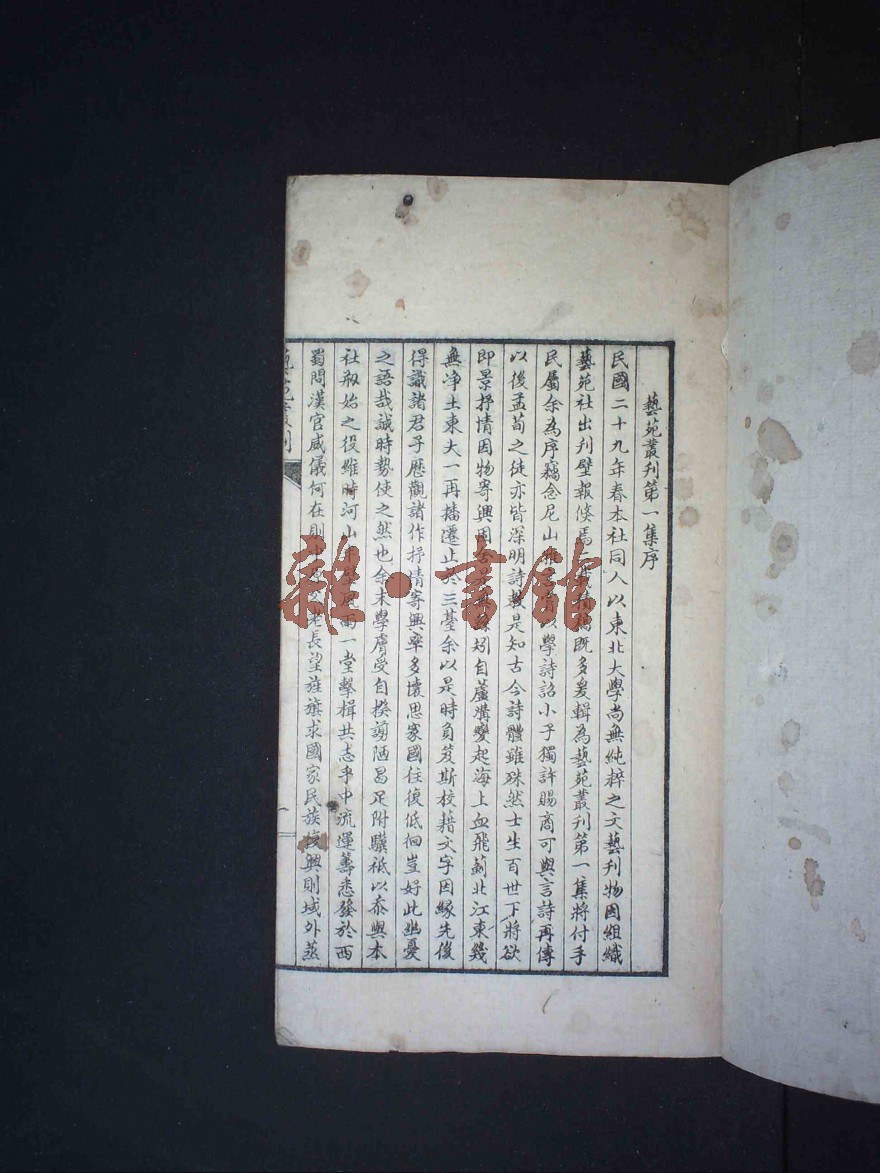 藝苑叢刊第一集序
民國二十九年春本社同人以東北大學尚無純粹之文藝刊物因組織
藝苑社出刊壁報倏焉 載積 既多爰輯為藝苑叢刊第一集將付手
民屬余為序竊念尼山 學詩詔小子獨許賜商可與言詩再傳
以後孟荀之徒亦皆深明詩教是知古今詩體雖殊然士生百世下將欲
即景抒情因物寄興 矧自蘆溝變起海上血飛薊北江東幾
無净土東大一再播遷止於三臺余以是時負笈斯校藉文字因緣先後
得識諸君子歷觀諸作抒情寄興率多懷思家國往復低徊豈好此幽憂
之語哉誠時勢使之然也余末學膚受自揆謭陋曷足附驥祗以忝與本
社剏始之役維時河山 一堂擊楫共志乎中流運籌悉發於西
蜀問漢官威儀何在則中 父老長望旌旗求國家民族復興則域外蒸
藝苑叢刊
一
雜·書館